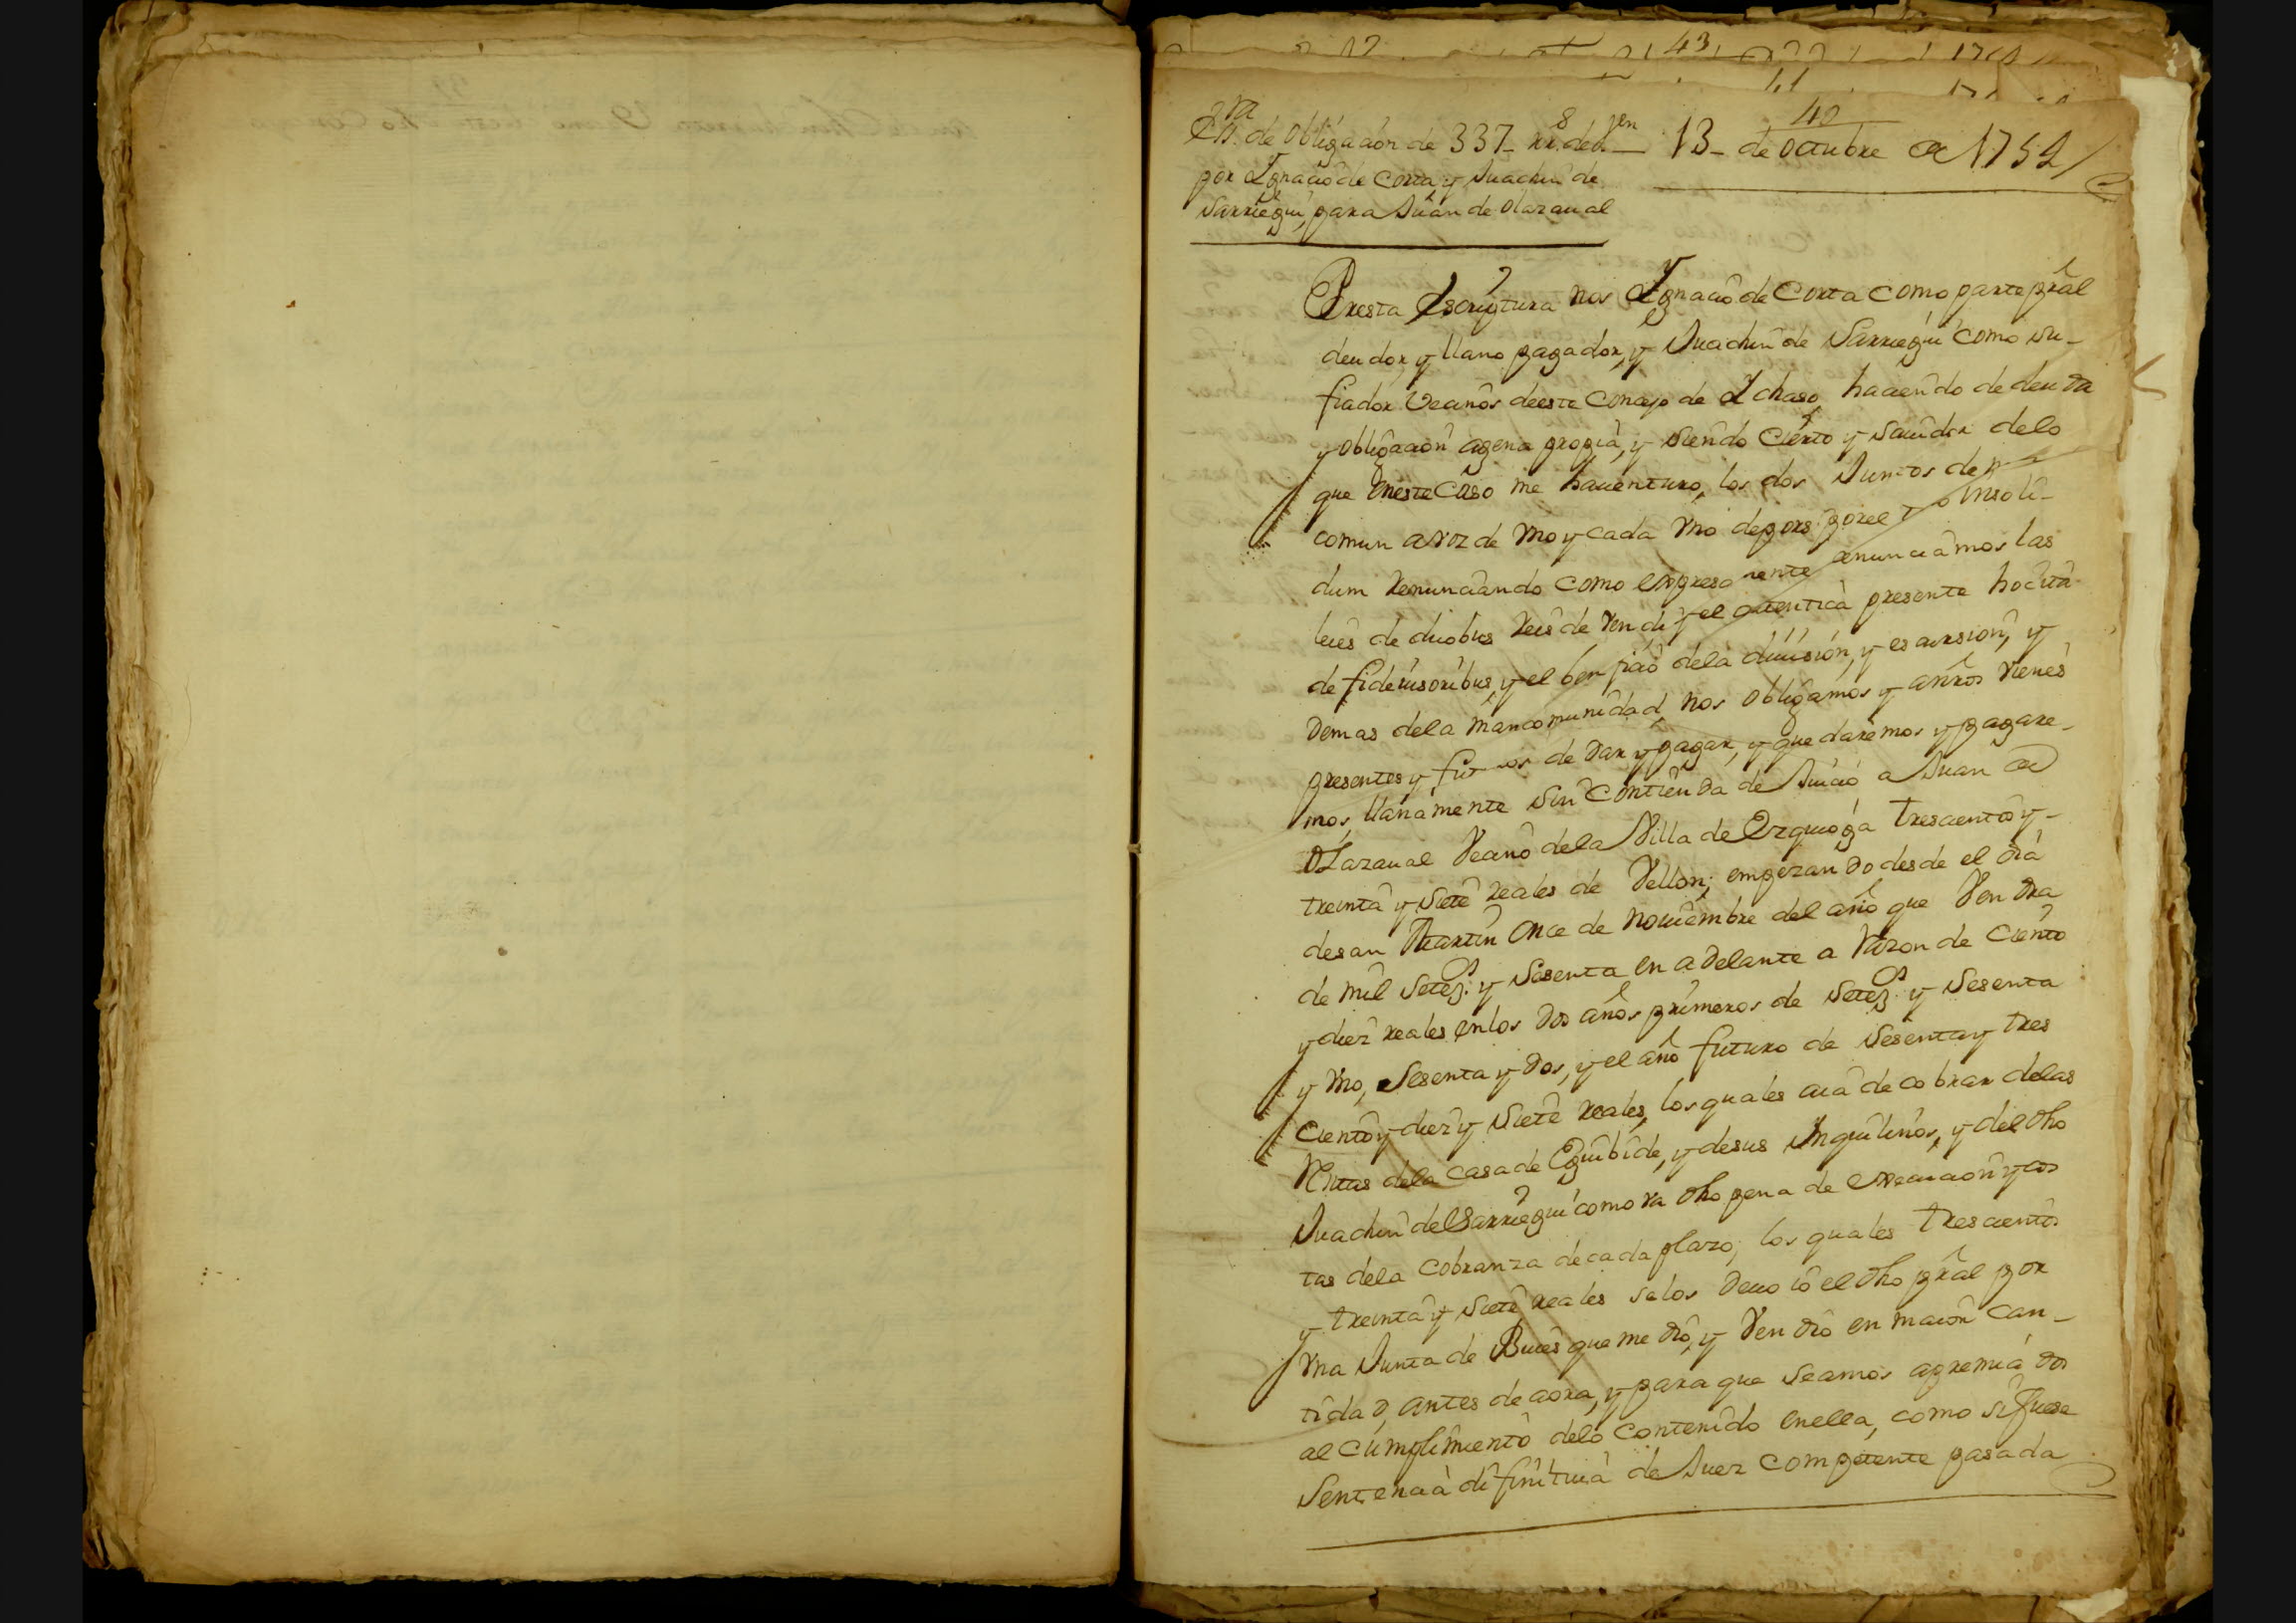 43
40
Esra. de obligacion de 337_ rrs. de vn en 13_ de octubre de 1759
por Ygnacio de Corta, y Juachin de
Sarriegui, para Juan de olazaual
Por esta escriptura nos Ygnacio de Corta como parte pral
deudor, y llano pagador, y Juachin de Sarriegui como su_
fiador Vecinos de este Concejo de Ychaso, haciendo de deuda
y obligacion agena propia, y siendo cierto y sauidor delo
que en este caso me hauenturo, los dos Juntos de m
comun a voz de vno y cada vno de por si por el insoli_
dum renunciando como expresamente renunciamos las
leies de duobus reis de vendi y el autentica presente hocita
de fideiusoribus, y el beneficio dela diuision, y escursion, y
demas dela mancomunidad, nos obligamos y a nros vienes
presentes y futuros de dar y pagar, y que daremos y pagare_
mos, llanamente sin contienda de Juicio a Juan de
Olazaual Vecino dela Villa de Ezquioga trescientos y_
treinta y siete reales de Vellon; empezando desde el dia
de san Martin once de nouiembre del año que Vendra
de mil setezs. y sesenta en adelante a razon de ciento
y diez reales en los dos años primeros de setezs. y sesenta
y vno, sesenta y dos, y el año futuro de sesenta y tres
ciento y diez y siete reales, los quales aia de cobrar delas
Rentas dela casa de Eguibide, y desus Inquilinos, y del dho
Juachin de Sarriegui como va dho pena de execucion y cos
tas dela cobranza de cada plazo; los quales trescientos
y treinta y siete reales se los deuo io el dho pral por
vna Junta de Bueies que me dio, y Vendio en maior can_
tidad, antes de aora, y para que seamos apremiados
al cumplimiento delo contenido en ella, como si fuese
sentencia difinitiua de Juez competente pasada